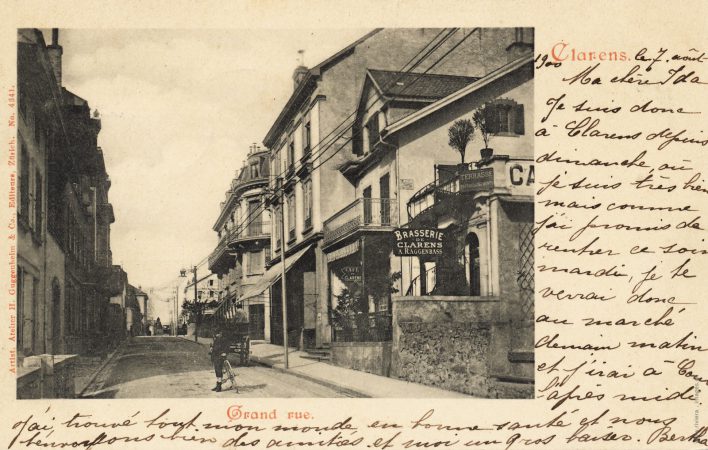 Clarens. le 7. août
1900
Ma chère Ida
Je suis donc
à Clarens depuis
dimanche où
je suis très bien
mais comme
j'ai promis de
rentrer ce soir
mardi, je te
verrai donc
au marché
demain matin
et j'irai à
l'après midi
J'ai trouvé tout mon monde en bonne santé et nous
t'envoyons bien des amitiés et moi un gros baiser. Bertha
Grand rue.
Artist. Atelier H. Guggenheim & Co., Editeurs, Zürich. No. 4341.
TERRASSE
CA
BRASSERIE
DE
CLARENS
A. RAGGENBASS
CAFÉ
DE
CLARENS